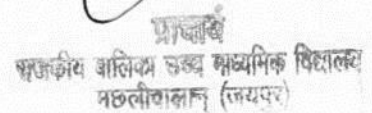 प्राचार्य
राजकीय बालिका उच्च माध्यमिक विद्यालय
मछलीवालान् (जयपुर)